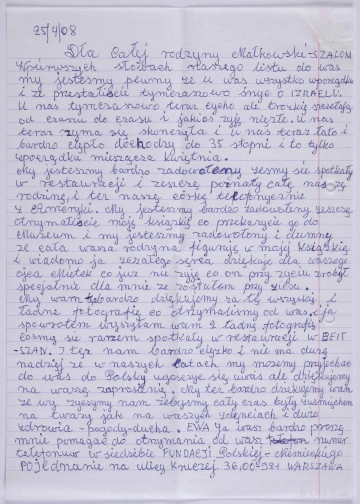 25/4/08
Dla Całej rodzyny Małkowski-SZALOM
Wpierwszych słowach naszego listu do was
my jesteśmy pewny że u was wszystko wporządku
i że przestaliście tymczasowo śnyc o IZRAELU.
U nas tymczasowo teraz cycho ale trozkię szeselają
od czasu do czasu i jakoś żyją nieźle. U nas
teraz zyma się skonczyła i u nas teraz lato i
bardzo ciepło dochodzy do 35 stopni i to tylko
wporządku miesząca kwietnia.
My jesteśmy bardzo zadowoleny żeśmy się spotkały
w restauracji i żeszcze poznały całe naszę
rodzinę i też naszę córkę telefonycznie
z Ameryki. My jesteśmy bardzo zadowoleny żeszcze
otrzymaliście moją książkę co przekazycie go do
Muzeum i my jesteśmy zadowoleny i dumny
że cała wasza rodzyna figuruję w mojej Książkę
i wiadomo ja zcałego serca dziękuję dla waszego
ojca Mietek co już nie żyję co on przy życiu zrobył
specjalnie dla mnie że zostałem przy życiu.
My wam bardzo dziękujemy za tę wszystkę i
ładne fotografię co otrzymaliśmy od was, i ja
spowrotem wysyłam wam 2 ładny fotografię
cośmy się razem spotkały w restauracji w BEIT
-SZAN. I też nam bardzo ciężko i nie ma dużę
nadziej że w naszych latach my możemy przyjechac
do was do Polsky wogoszcze się uwas ale dziękujemy
na waszę zaprosenię, My też bardzo dziękujemy wam
że wy życzymy nam żebyśmy cały czas były zuśmiychem
na twarzy jak na waszych zdjenciach i dużo
zdrowia-pogody-ducha. EWA Ja was bardzo proszę
mnie pomagac do otrzymania od was numer
telefonuw w siedsibie FUNDACJI Polskiej-Niemieckiego
POJednanie na ulicy Kruczej 36,00-921 WARSZAWA